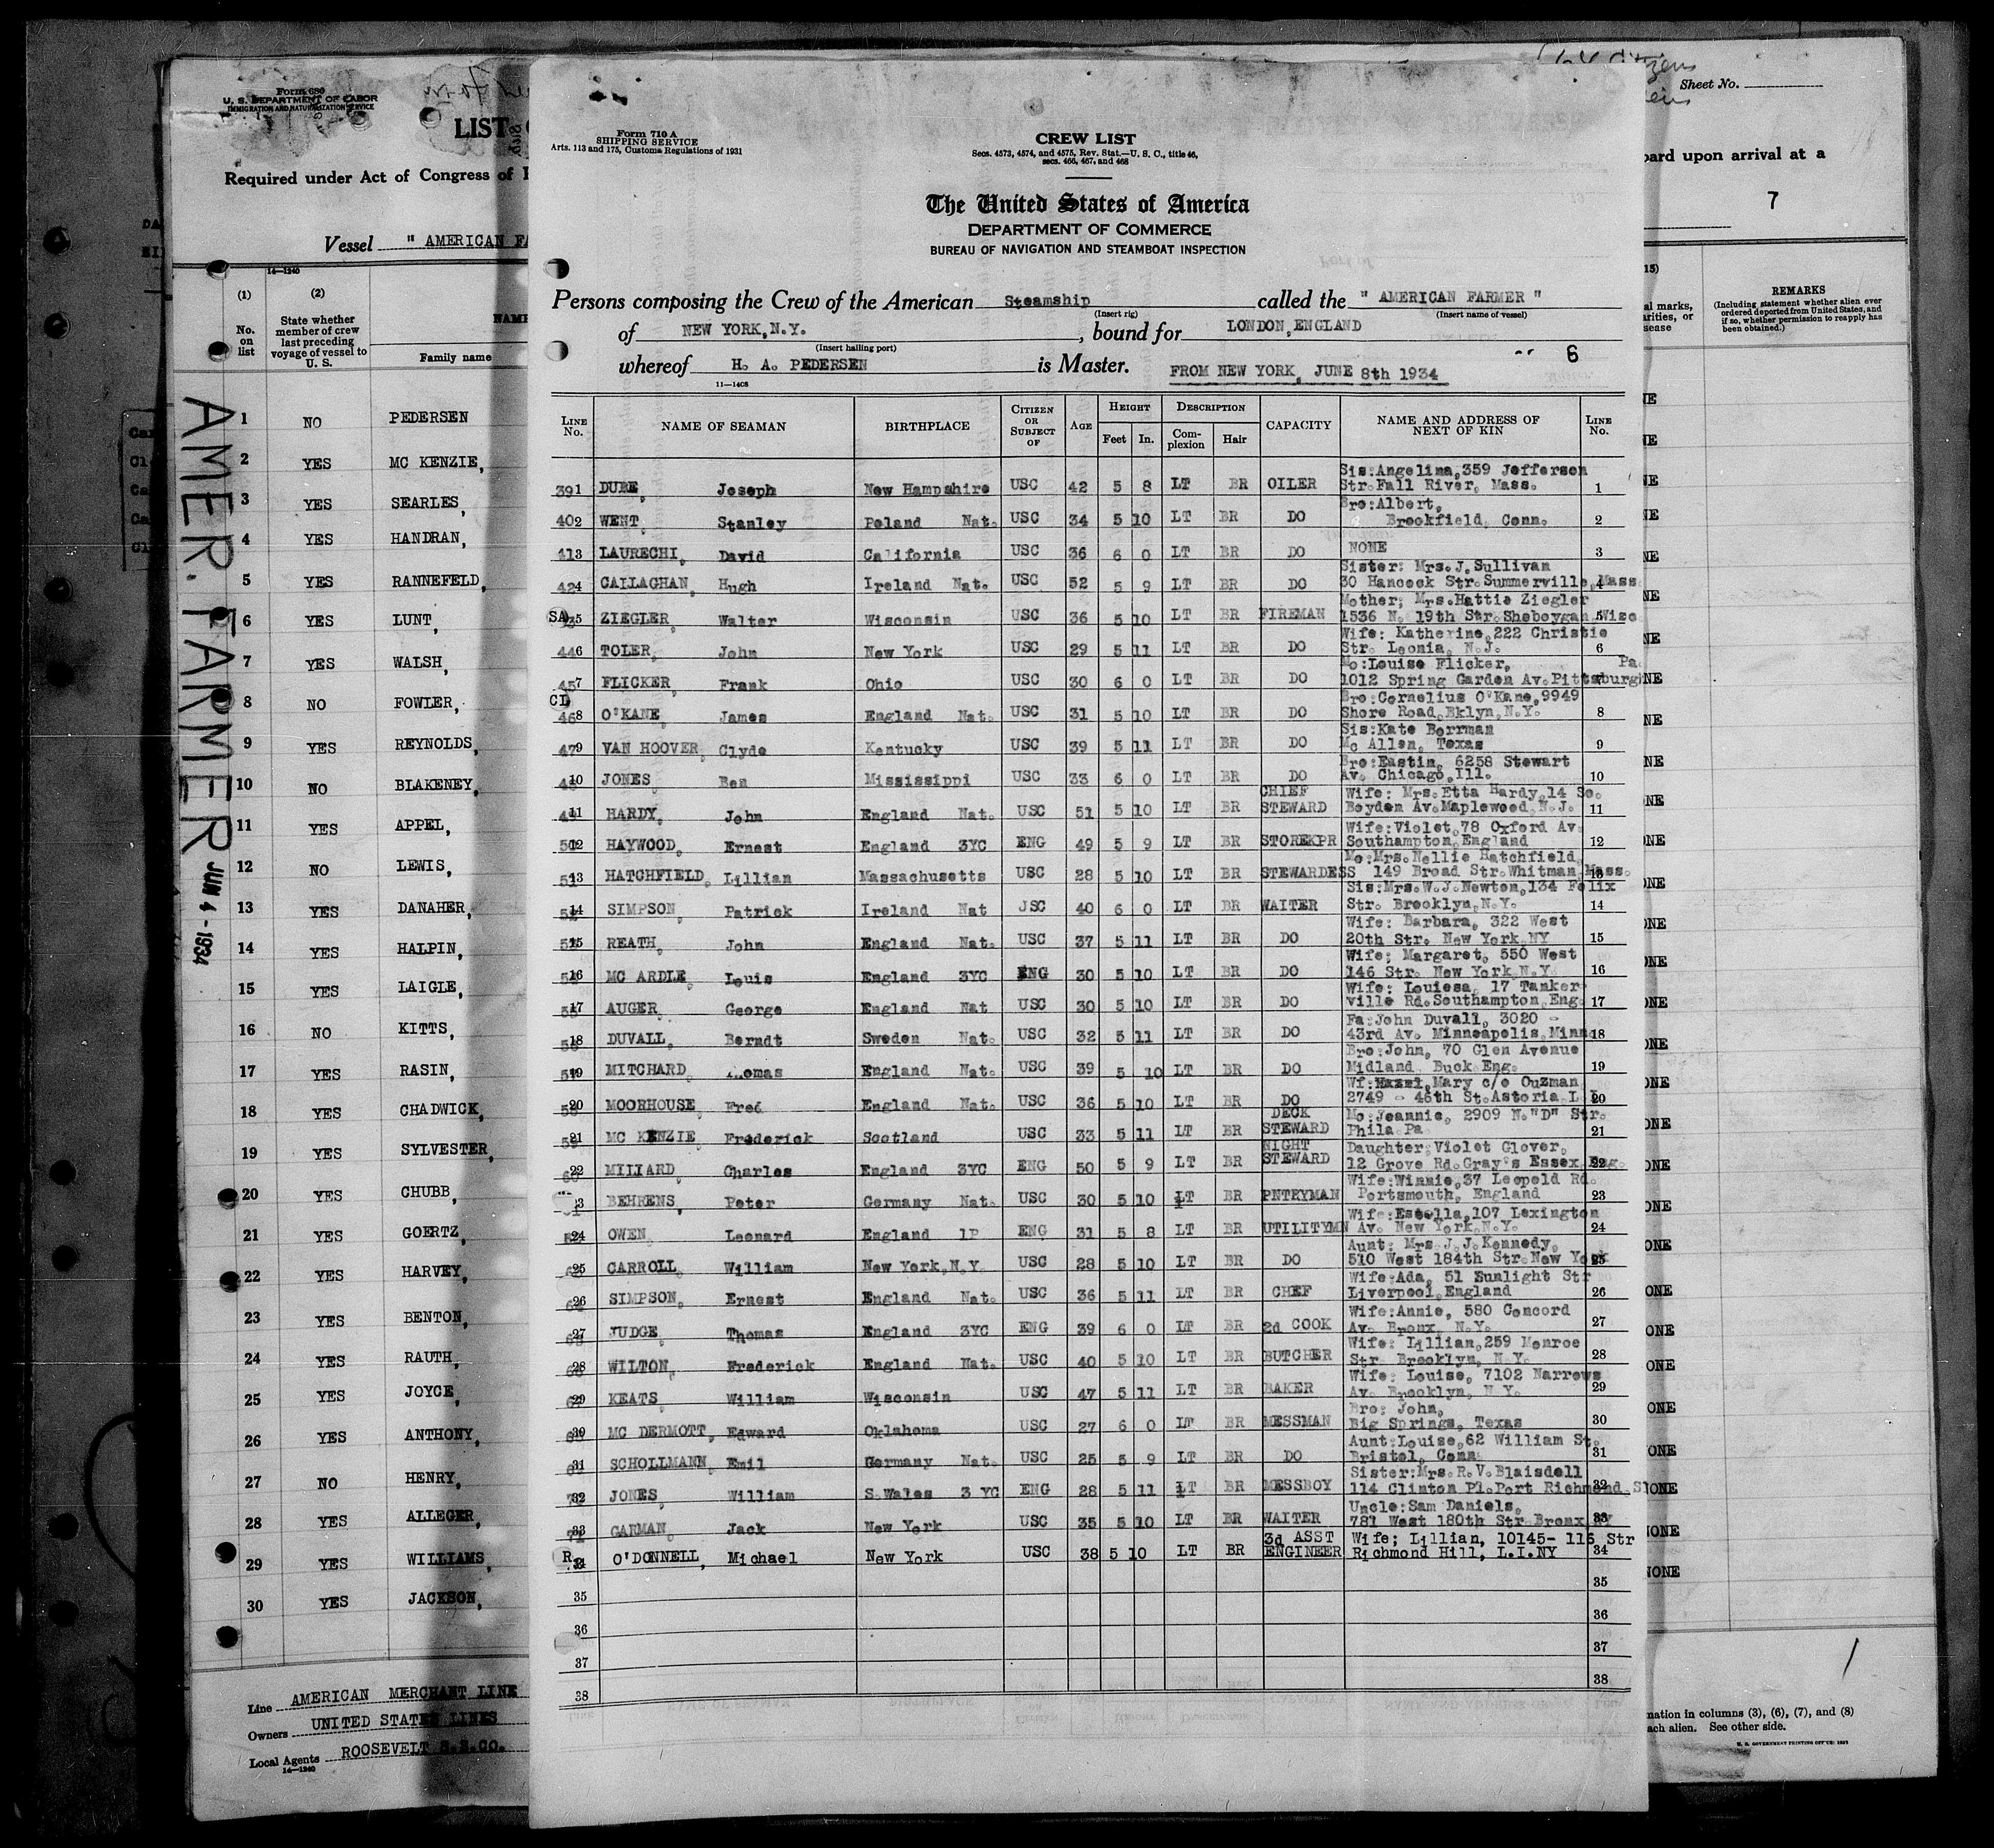 Form 680
U. S. DEPARTMENT OF LABOR
IMMIGRATION AND NATURALIZATION SERVICE
LIST
Required under Act of Congress of
Vessel " AMERICAN FA
14—1240
(1) (2)
No. on list
State whether member of crew last preceding voyage of vessel to U. S.
NAME
Family name
1 NO PEDERSEN
2 YES MC KENZIE,
3 YES SEARLES,
4 YES HANDRAN,
5 YES RANNEFELD,
6 YES LUNT,
7 YES WALSH,
8 NO FOWLER,
9 YES REYNOLDS,
10 NO BLAKENEY,
11 YES APPEL,
12 NO LEWIS,
13 YES DANAHER,
14 YES HALPIN,
15 YES LAIGLE,
16 NO KITTS,
17 YES RASIN,
18 YES CHADWICK,
19 YES SYLVESTER,
20 YES CHUBB,
21 YES GOERTZ,
22 YES HARVEY,
23 YES BENTON,
24 YES RAUTH,
25 YES JOYCE,
26 YES ANTHONY,
27 NO HENRY,
28 YES ALLEGER,
29 YES WILLIAMS,
30 YES JACKSON,
Line AMERICAN MERCHANT LINE
Owners UNITED STATES LINES
Local Agents ROOSEVELT S.S.CO.
14—1240
AMER. FARMER JUN 4 - 1934
Form 710 A
SHIPPING SERVICE
Arts. 113 and 175, Customs Regulations of 1931
CREW LIST
Secs. 4573, 4574, and 4575, Rev. Stat.—U. S. C., title 46,
secs. 466, 467, and 468
The United States of America
DEPARTMENT OF COMMERCE
BUREAU OF NAVIGATION AND STEAMBOAT INSPECTION
Persons composing the Crew of the American Steamship called the " AMERICAN FARMER "
(Insert rig) (Insert name of vessel)
of NEW YORK,N.Y. , bound for LONDON,ENGLAND
(Insert hailing port)
whereof H. A. PEDERSEN is Master. 6
11—1408
FROM NEW YORK, JUNE 8th 1934
LINE No. NAME OF SEAMAN BIRTHPLACE CITIZEN OR SUBJECT OF AGE HEIGHT Feet In. DESCRIPTION Complexion Hair CAPACITY NAME AND ADDRESS OF NEXT OF KIN LINE No.
Sis:Angelina,359 Jefferson
391 DUBE, Joseph New Hampshire USC 42 5 8 LT BR OILER Str.Fall River, Mass. 1
Bro:Albert,
402 WENT, Stanley Poland Nat. USC 34 5 10 LT BR DO Brookfield, Conn. 2
413 LAURECHI, David California USC 36 6 0 LT BR DO NONE 3
Sister: Mrs.J.Sullivan
424 CALLAGHAN, Hugh Ireland Nat. USC 52 5 9 LT BR DO 30 Hancock Str.Summerville,Mass 4
Mother; Mrs.Hattie Ziegler
SA 5 ZIEGLER, Walter Wisconsin USC 36 5 10 LT BR FIREMAN 1536 N. 19th Str.Sheboygan,Wisc 5
Wife: Katherine,222 Christie
446 TOLER, John New York USC 29 5 11 LT BR DO Str. Leonia, N.J. 6
Mo:Louise Flicker, Pa.
457 FLICKER, Frank Ohio USC 30 6 0 LT BR DO 1012 Spring Garden Av.Pittsburgh
CL Bro:Cornelius O'Kane,9949
468 O'KANE, James England Nat. USC 31 5 10 LT BR DO Shore Road,Bklyn,N.Y. 8
Sis:Kate Berrman
479 VAN HOOVER, Clyde Kentucky USC 39 5 11 LT BR DO Mc Allen, Texas 9
Bro:Eastin, 6258 Stewart
10 JONES, Ben Mississippi USC 33 6 0 LT BR DO Av. Chicago,Ill. 10
CHIEF Wife: Mrs.Etta Hardy,14 So.
11 HARDY, John England Nat. USC 51 5 10 LT BR STEWARD Boyden Av.Maplewood,N.J. 11
Wife:Violet,78 Oxford Av.
12 HAYWOOD, Ernest England 3YC ENG 49 5 9 LT BR STOREKPR Southampton,England 12
Mo:Mrs.Nellie Hatchfield,
13 HATCHFIELD, Lillian Massachusetts USC 28 5 10 LT BR STEWARDESS 149 Broad Str.Whitman,Mass. 13
Sis:Mrs.W.J.Newton,134 Felix
14 SIMPSON, Patrick Ireland Nat USC 40 6 0 LT BR WAITER Str. Brooklyn,N.Y. 14
Wife: Barbara, 322 West
15 REATH, John England Nat. USC 37 5 11 LT BR DO 20th Str. New York,NY 15
Wife; Margaret, 550 West
16 MC ARDLE, Louis England 3YC ENG 30 5 10 LT BR DO 146 Str. New York,N.Y. 16
Wife: Louiesa, 17 Tanker
17 AUGER, George England Nat USC 30 5 10 LT BR DO ville Rd.Southampton,Eng. 17
Fa:John Duvall, 3020 -
18 DUVALL, Berndt Sweden Nat. USC 32 5 11 LT BR DO 43rd Av. Minneapolis,Minn. 18
Bro:John, 70 Glen Avenue
19 MITCHARD, homas England Nat. USC 39 5 10 LT BR DO Midland Buck Eng. 19
Wf: Mary c/o Ouzman
20 MOORHOUSE, Fred England Nat. USC 36 5 10 LT BR DO 2749 - 46th St.Astoria L.I. 20
DECK Mo:Jeannie, 2909 N."D" Str.
21 MC KENZIE, Frederick Scotland USC 33 5 11 LT BR STEWARD Phila Pa 21
NIGHT Daughter:Violet Glover,
22 MILLARD, Charles England 3YC ENG 50 5 9 LT BR STEWARD 12 Grove Rd.Gray's Essex,Eng. 22
Wife:Winnie,37 Leopold Rd.
3 BEHRENS, Peter Germany Nat. USC 30 5 10 LT BR PNTRYMAN Portsmouth, England 23
Wife:Estella,107 Lexington
24 OWEN, Leonard England 1P ENG 31 5 8 LT BR UTILITYMN Av. New York,N.Y. 24
Aunt: Mrs.J.J.Kennedy,
25 CARROLL, William New York,N.Y. USC 28 5 10 LT BR DO 510 West 184th Str.New York 25
Wife:Ada, 51 Sunlight Str
26 SIMPSON, Ernest England Nat. USC 36 5 11 LT BR CHEF Liverpool,England 26
Wife:Annie, 580 Concord
27 JUDGE, Thomas England 3YC ENG 39 6 0 LT BR 2d COOK Av. Bronx, N.Y. 27
Wife: Lillian,259 Monroe
28 WILTON, Frederick England Nat. USC 40 5 10 LT BR BUTCHER Str. Brooklyn, N.Y. 28
Wife: Louise, 7102 Narrows
29 KEATS, William Wisconsin USC 47 5 11 LT BR BAKER Av. Brooklyn, N.Y. 29
Bro: John,
30 MC DERMOTT, Edward Oklahoma USC 27 6 0 LT BR MESSMAN Big Springs, Texas 30
Aunt:Louise,62 William St.
31 SCHOLLMANN, Emil Germany Nat. USC 25 5 9 LT BR DO Bristol, Conn. 31
Sister:Mrs.R.V.Blaisdell
32 JONES, William S.Wales 3 YC ENG 28 5 11 LT BR MESSBOY 114 Clinton Pl.Port Richmond,S 32
Uncle:Sam Daniels,
33 GARMAN, Jack New York USC 35 5 10 LT BR WAITER 781 West 180th Str.Bronx,NY 33
3d ASST Wife; Lillian, 10145- 116 Str
R O'DONNELL, Michael New York USC 38 5 10 LT BR ENGINEER Richmond Hill, L.I.NY 34
35 35
36 36
37 37
38 38
Citizens
Sheet No.
oard upon arrival at a
7
15)
al marks,
arities, or
sease
REMARKS
(Including statement whether alien ever ordered deported from United States, and if so, whether permission to reapply has been obtained.)
mation in columns (3), (6), (7), and (8)
ach alien. See other side.
U. S. GOVERNMENT PRINTING OFFICE